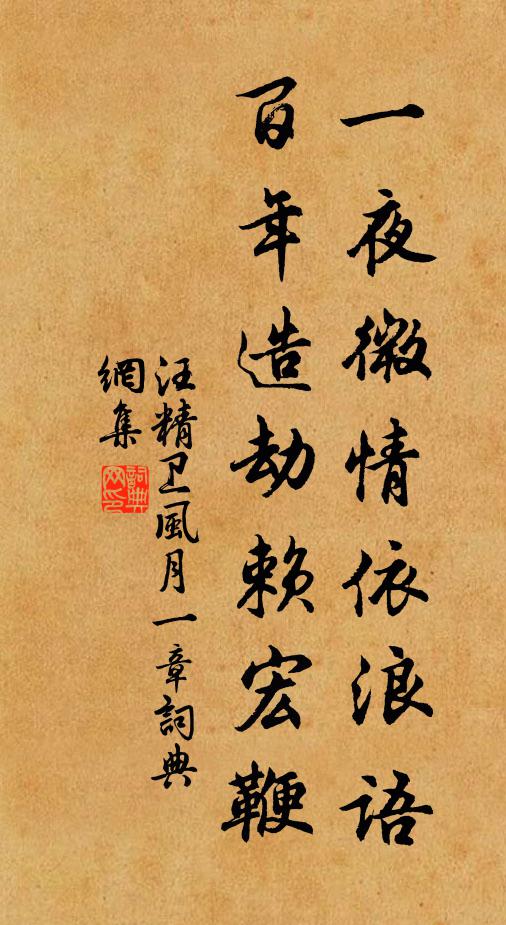 一夜微情依浪语
百年造劫赖宏鞭
汪精卫風月一章詞典
網集
詞典
网印